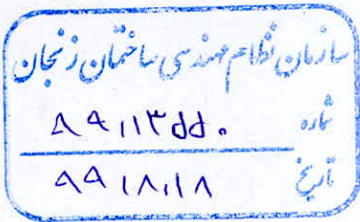 سازمان نظام مهندسی ساختمان زنجان
شماره ۸۹/۱۳۵۵۰
تاریخ ۸۹/۸/۱۸